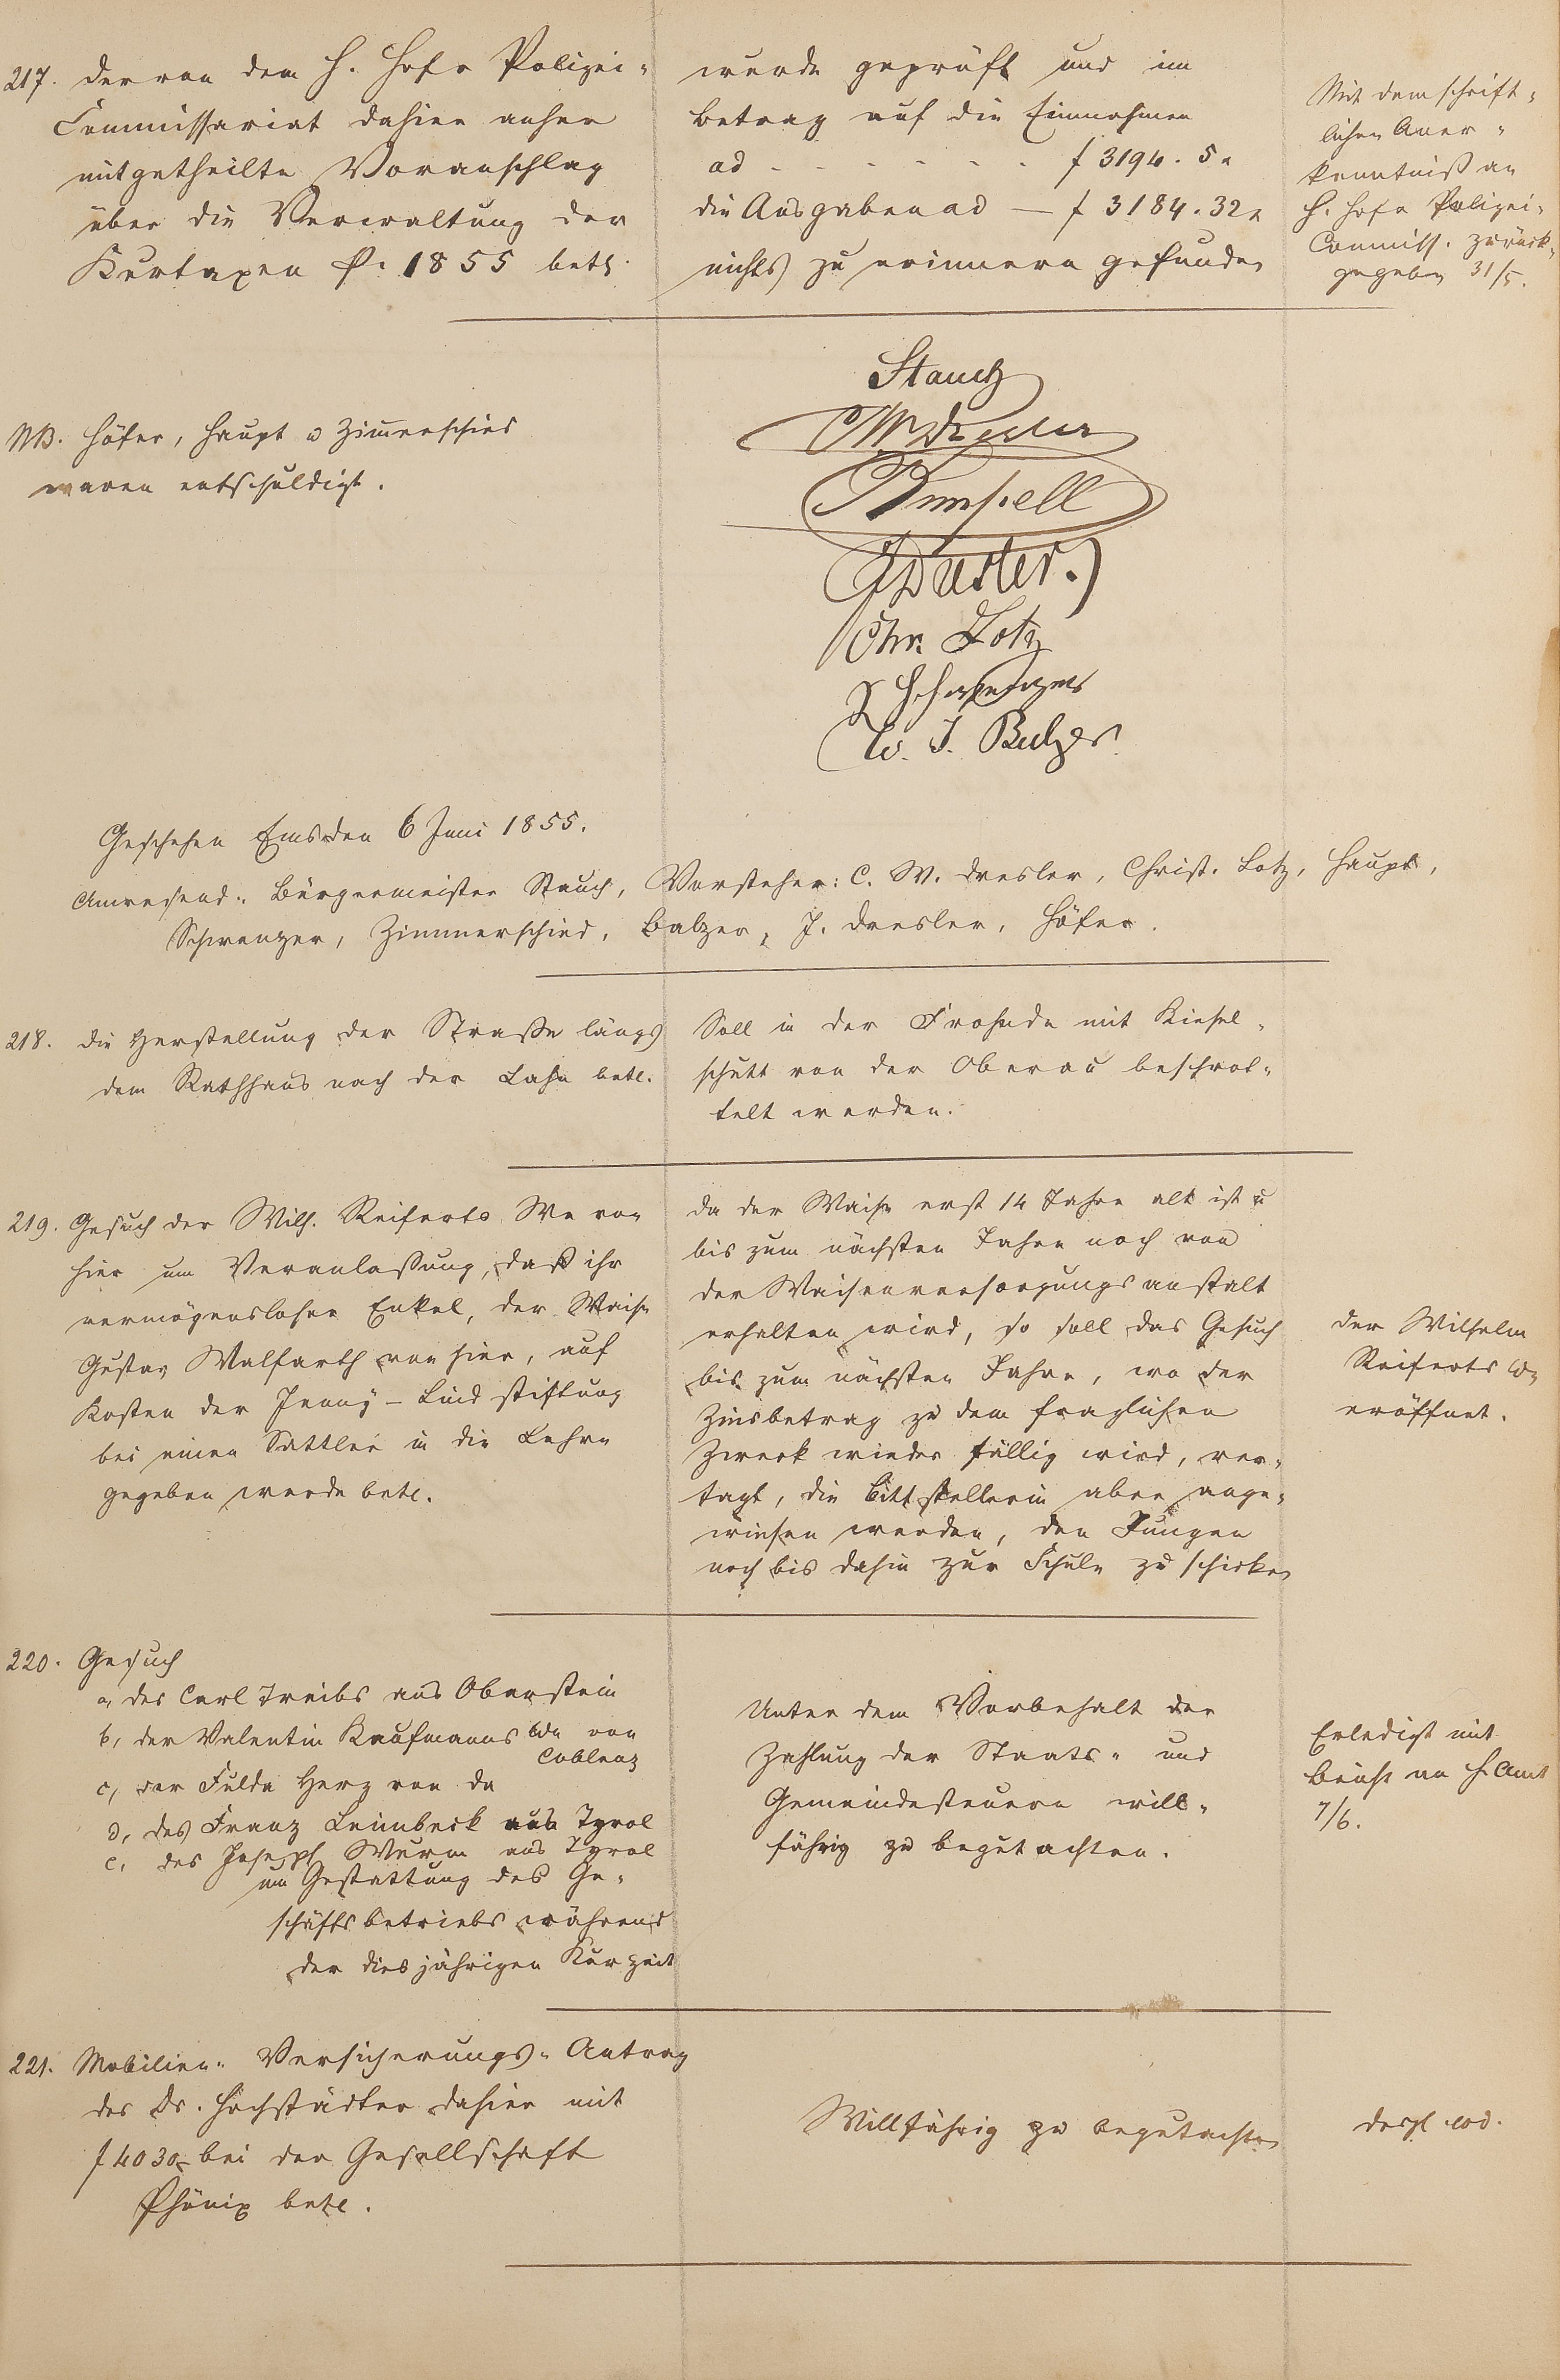 217. der von dem H. Hofr Polizei-
Commissariat dahier anher
mitgetheilte Voranschlag
über die Verwaltung der
Kurtaxen p. 1855 betr.
wurde geprüft und im
Betrag auf die Einnahmen
ad - - - - - - f 3194. 5 x
die Ausgaben ad — f 3184. 32 x
nichts zu erinnern gefunden
Mit dem schrift-
lichen Aner-
kenntniß an
H. Hofr Polizei-
Commiss. zurück-
gegeben 31/5.
NB. Höfer, Haupt u Zimerschied
waren entschuldigt.
Stauch
CW Dresler
Rumpell
J Dresler.
Chr. Lotz
Schwenzer
W. J. Balzer
Geschehen Ems den 6 Juni 1855.
Anwesend: Bürgermeister Stauch, Vorsteher: C. W. Dresler, Christ. Lotz, Haupt,
Schwenzer, Zimmerschied, Balzer, J. Dresler, Höfer.
218. die Herstellung der Straße längs
dem Rathhaus nach der Lahn betr.
Soll in der Frohnde mit Kiesel-
schutt von der Oberau beschrot-
telt werden.
219. Gesuch der Wilh. Reiferts We von
hier um Veranlaßung, daß ihr
vermögensloser Enkel, der Waise
Gustav Walfarth von hier, auf
Kosten der Jenny-Lind stiftung
bei einen Sattler in die Lehre
gegeben werde betr.
da der Waise erst 14 Jahre alt ist u
bis zum nächsten Jahre noch von
der Waisenversorgungsanstalt
erhalten wird, so soll das Gesuch
bis zum nächsten Jahre, wo der
Zinsbetrag zu dem fraglichen
Zweck wieder fällig wird, ver-
tagt, die Bittstellerin aber ange-
wiesen werden, den Jungen
noch bis dahin zur Schule zu schicken
der Wilhelm
Reiferts We
eröffnet.
220. Gesuch
a, des Carl Treibs aus Oberstein
b, der Valentin Kaufmanns We von
Coblenz
c, der Fulda Herz von da
d, des Franz Leimbeck aus Tyrol
e, des Joseph Wurm aus Tyrol
um Gestattung des Ge-
schäftsbetriebs während
der diesjährigen Kurzeit
Unter dem Vorbehalt der
Zahlung der Staats- und
Gemeindesteuern will-
fährig zu begutachten.
Erledigt mit
Bericht an H. Amt
7/6.
221. Mobilien-Versicherungs-Antrag
des Dr. Hochstädter dahier mit
f 4030 bei der Gesellschaft
Phönix betr.
Willfährig zu begutachten
desgl. eod.